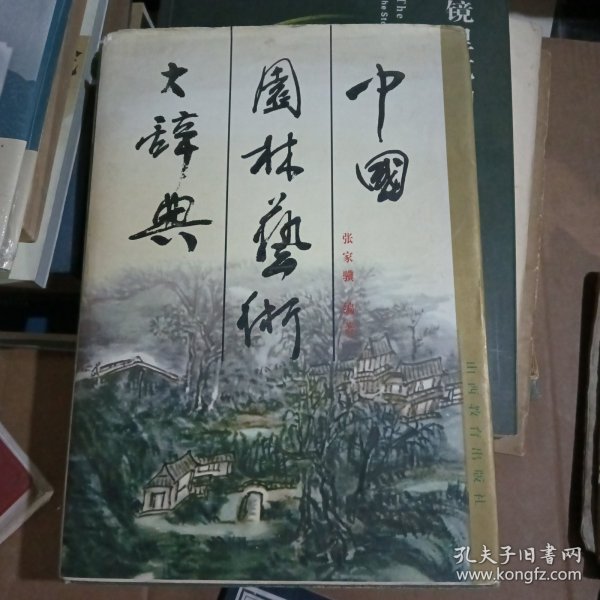 中國
園林藝術
大辭典
张家骥 编著
山西教育出版社
The
the Sto
镜
孔夫子旧书网
www.kongfz.com